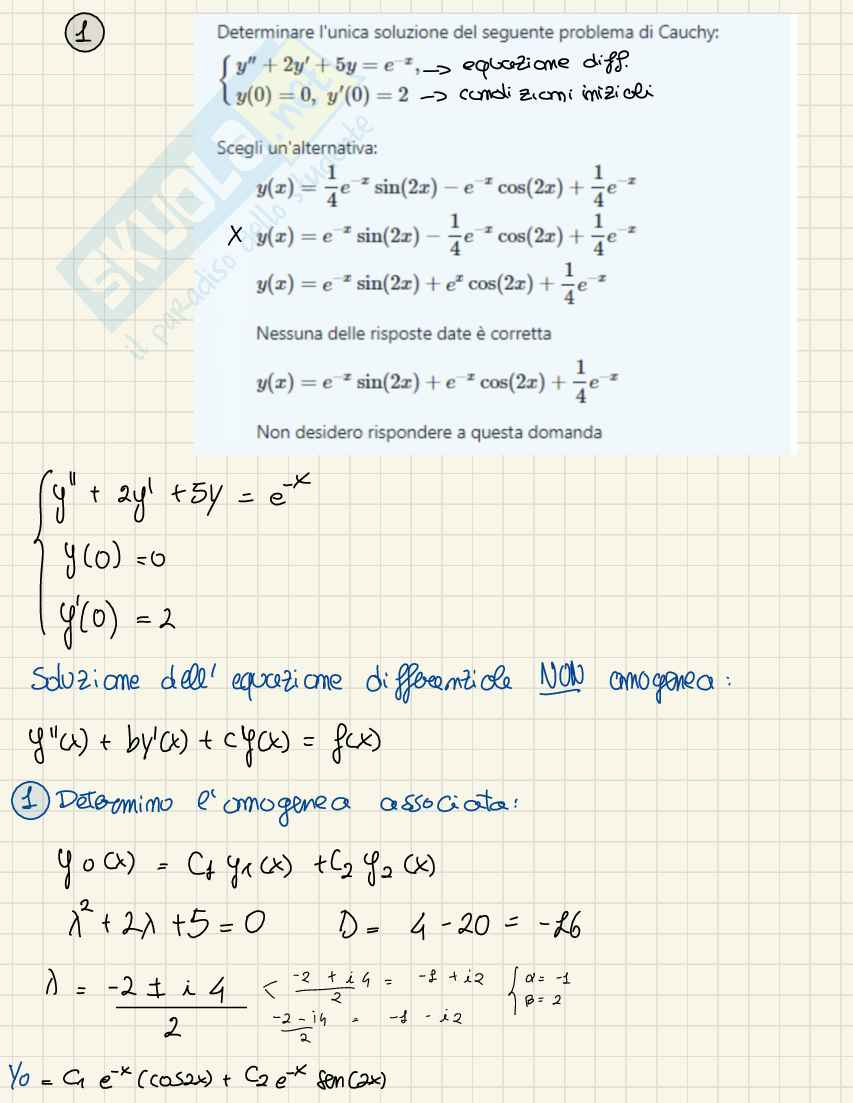 1
Determinare l'unica soluzione del seguente problema di Cauchy:
y'' + 2y' + 5y = e^{-x}, → equazione diff.
y(0) = 0, y'(0) = 2 → condizioni iniziali
Scegli un'alternativa:
y(x) = 1/4 e^{-x} sin(2x) − e^{-x} cos(2x) + 1/4 e^{-x}
X y(x) = e^{-x} sin(2x) − 1/4 e^{-x} cos(2x) + 1/4 e^{-x}
y(x) = e^{-x} sin(2x) + e^{x} cos(2x) + 1/4 e^{-x}
Nessuna delle risposte date è corretta
y(x) = e^{-x} sin(2x) + e^{-x} cos(2x) + 1/4 e^{-x}
Non desidero rispondere a questa domanda
SKUOLA.net
il paradiso dello studente
y'' + 2y' + 5y = e^{-x}
y(0) = 0
y'(0) = 2
Soluzione dell' equazione differenziale NON omogenea:
y''(x) + by'(x) + cy(x) = f(x)
1 Determino l'omogenea associata:
y0(x) = C1 y1(x) + C2 y2(x)
λ² + 2λ + 5 = 0 D = 4 - 20 = -16
λ = (-2 ± i 4)/2 < (-2 + i4)/2 = -1 + i2 { α = -1
(-2 - i4)/2 = -1 - i2 β = 2
y0 = C1 e^{-x} (cos2x) + C2 e^{-x} sen(2x)